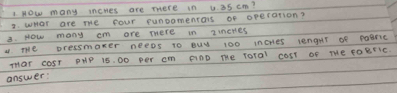 1. HOW many inches are THere in 6.35 cm?
2. WHAT are THE Four Fundamentals OF OPERATION?
3. How many cm are THere in 2 inches
4. THE Dressmaker needs to BUY 100 INCHES lenght OF FABRIC
THAT COST PHP 15.00 Per cm FIND THE TOTAL COST OF THE FABRIC.
answer: